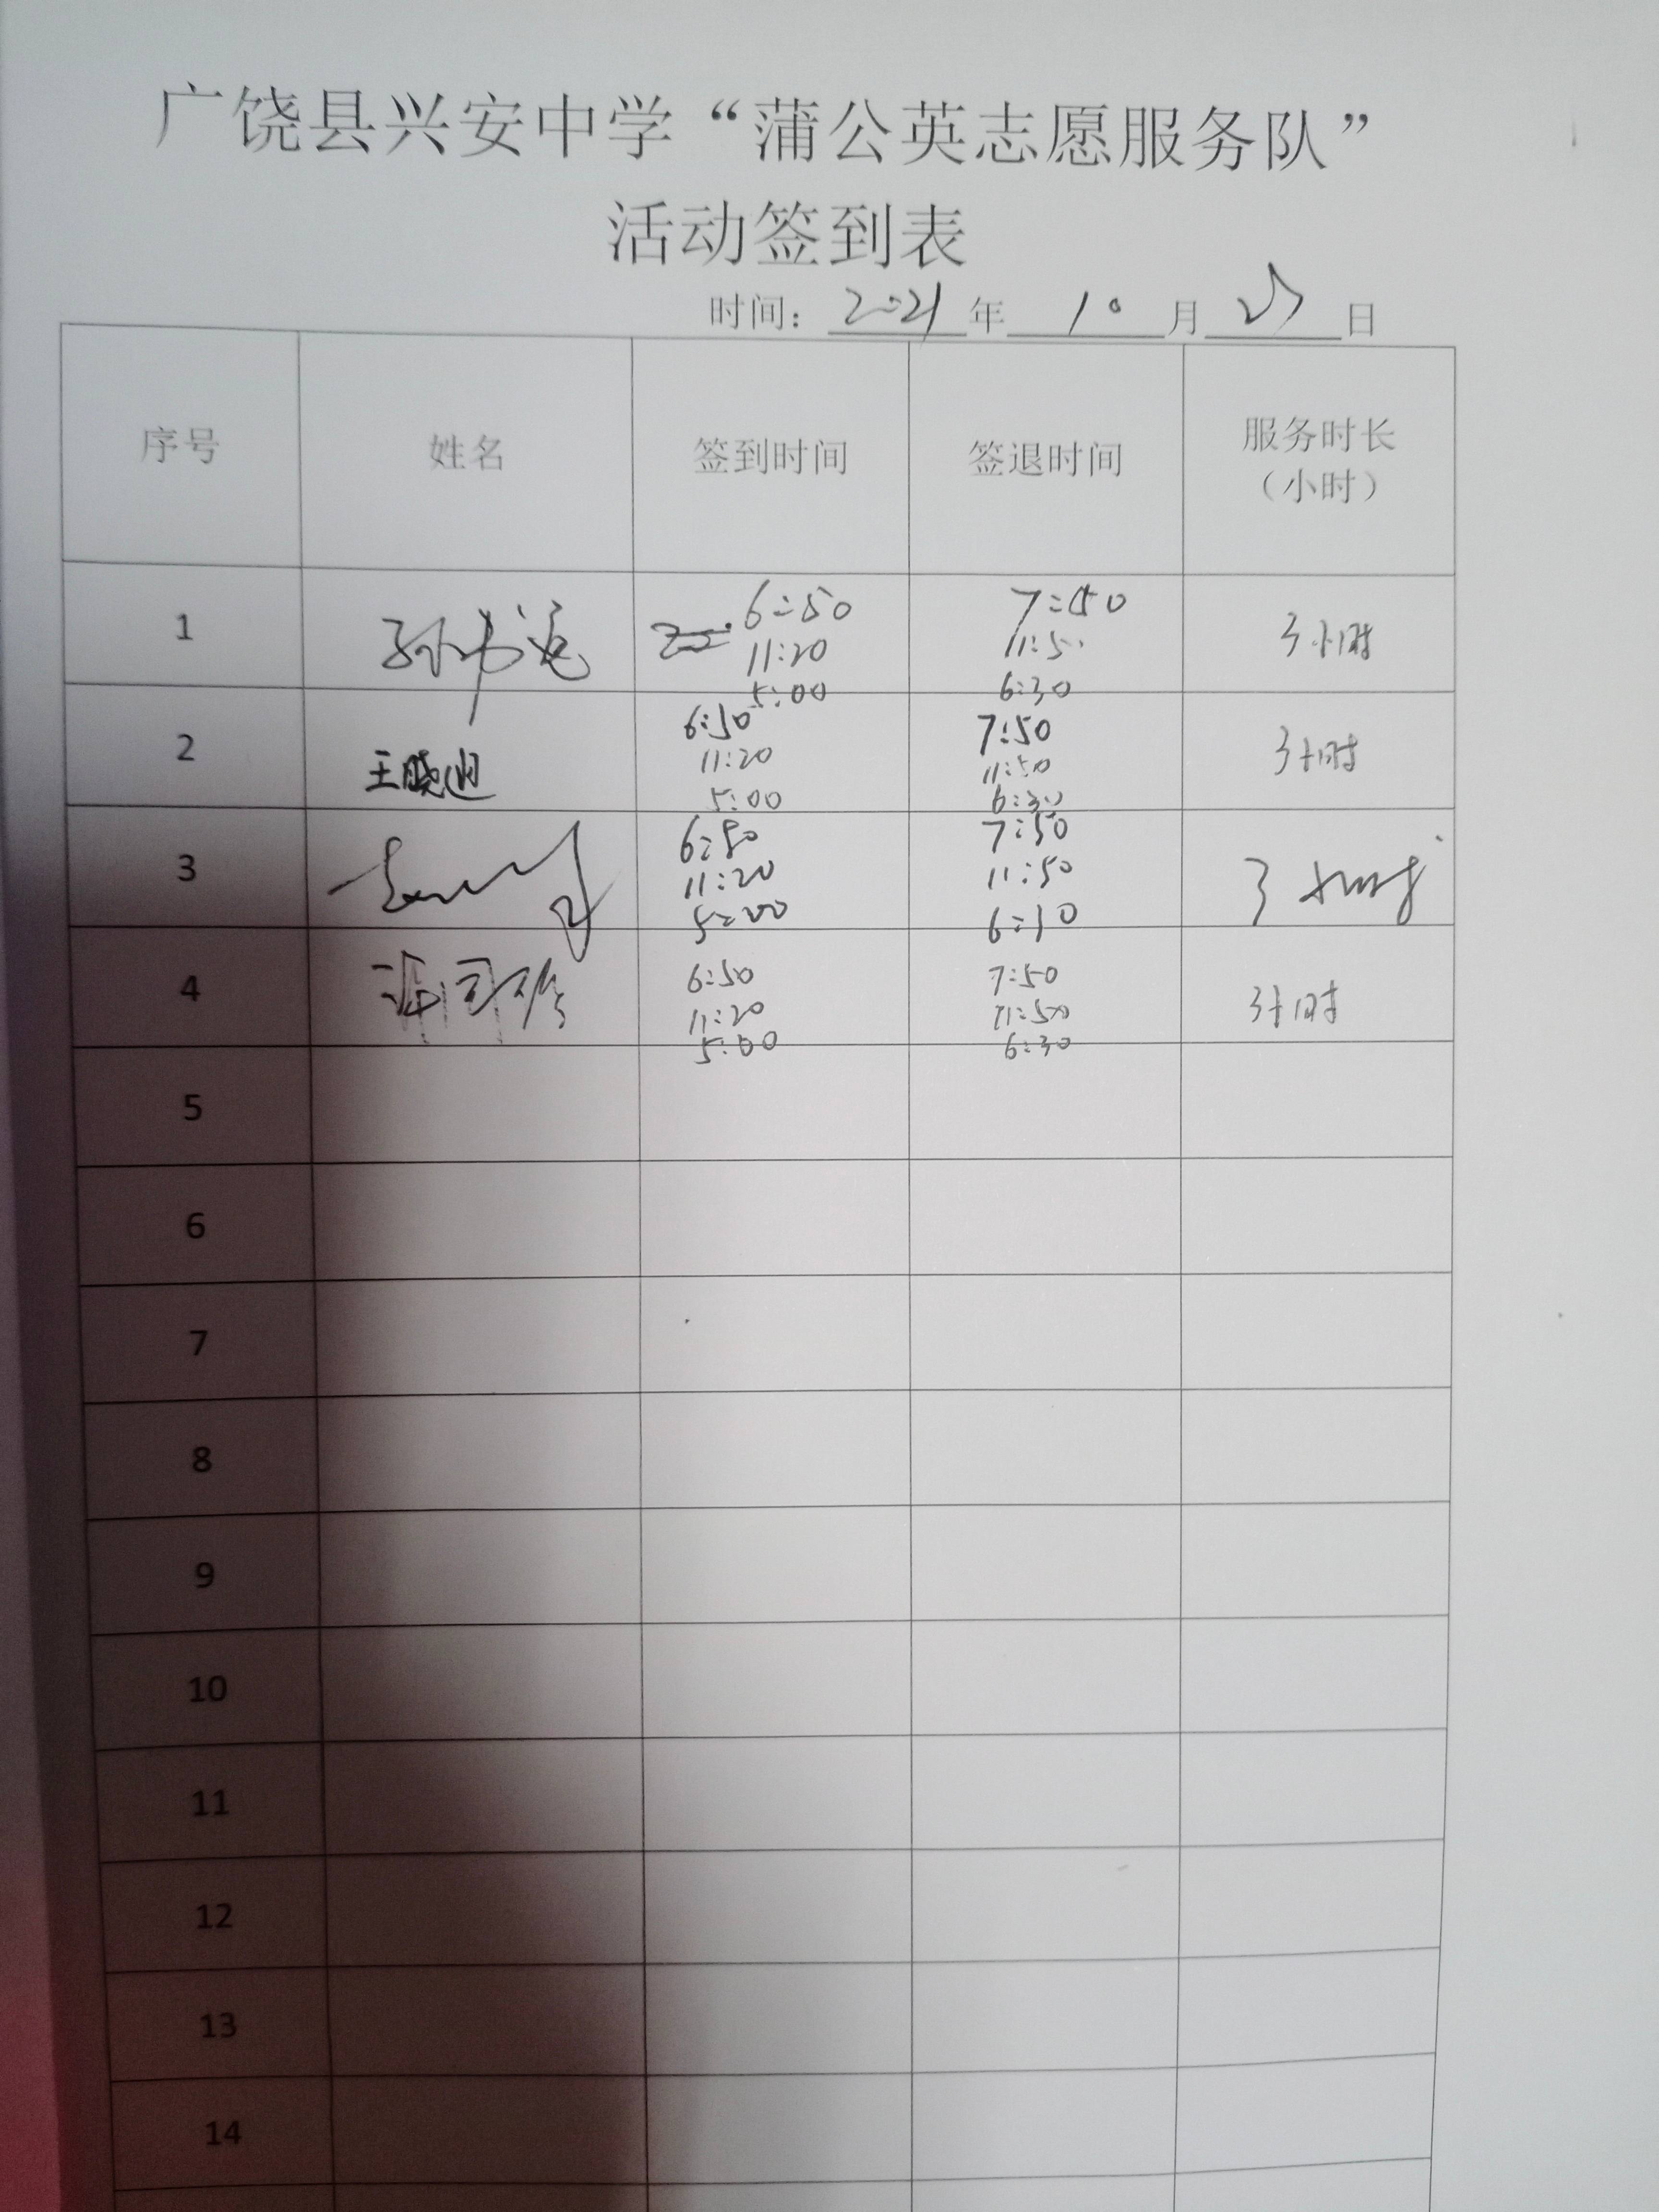 广饶县兴安中学“蒲公英志愿服务队”
活动签到表
时间: 2021 年 10 月 日
序号 姓名 签到时间 签退时间 服务时长
(小时)
1 孙 6:50 7:50 3小时
11:20 11:50
5:00 6:30
2 王晓迪 6:50 7:50 3小时
11:20 11:50
5:00 6:30
3 6:50 7:50 3小时
11:20 11:50
5:00 6:30
4 6:50 7:50 3小时
11:20 11:50
5:00 6:30
5
6
7
8
9
10
11
12
13
14